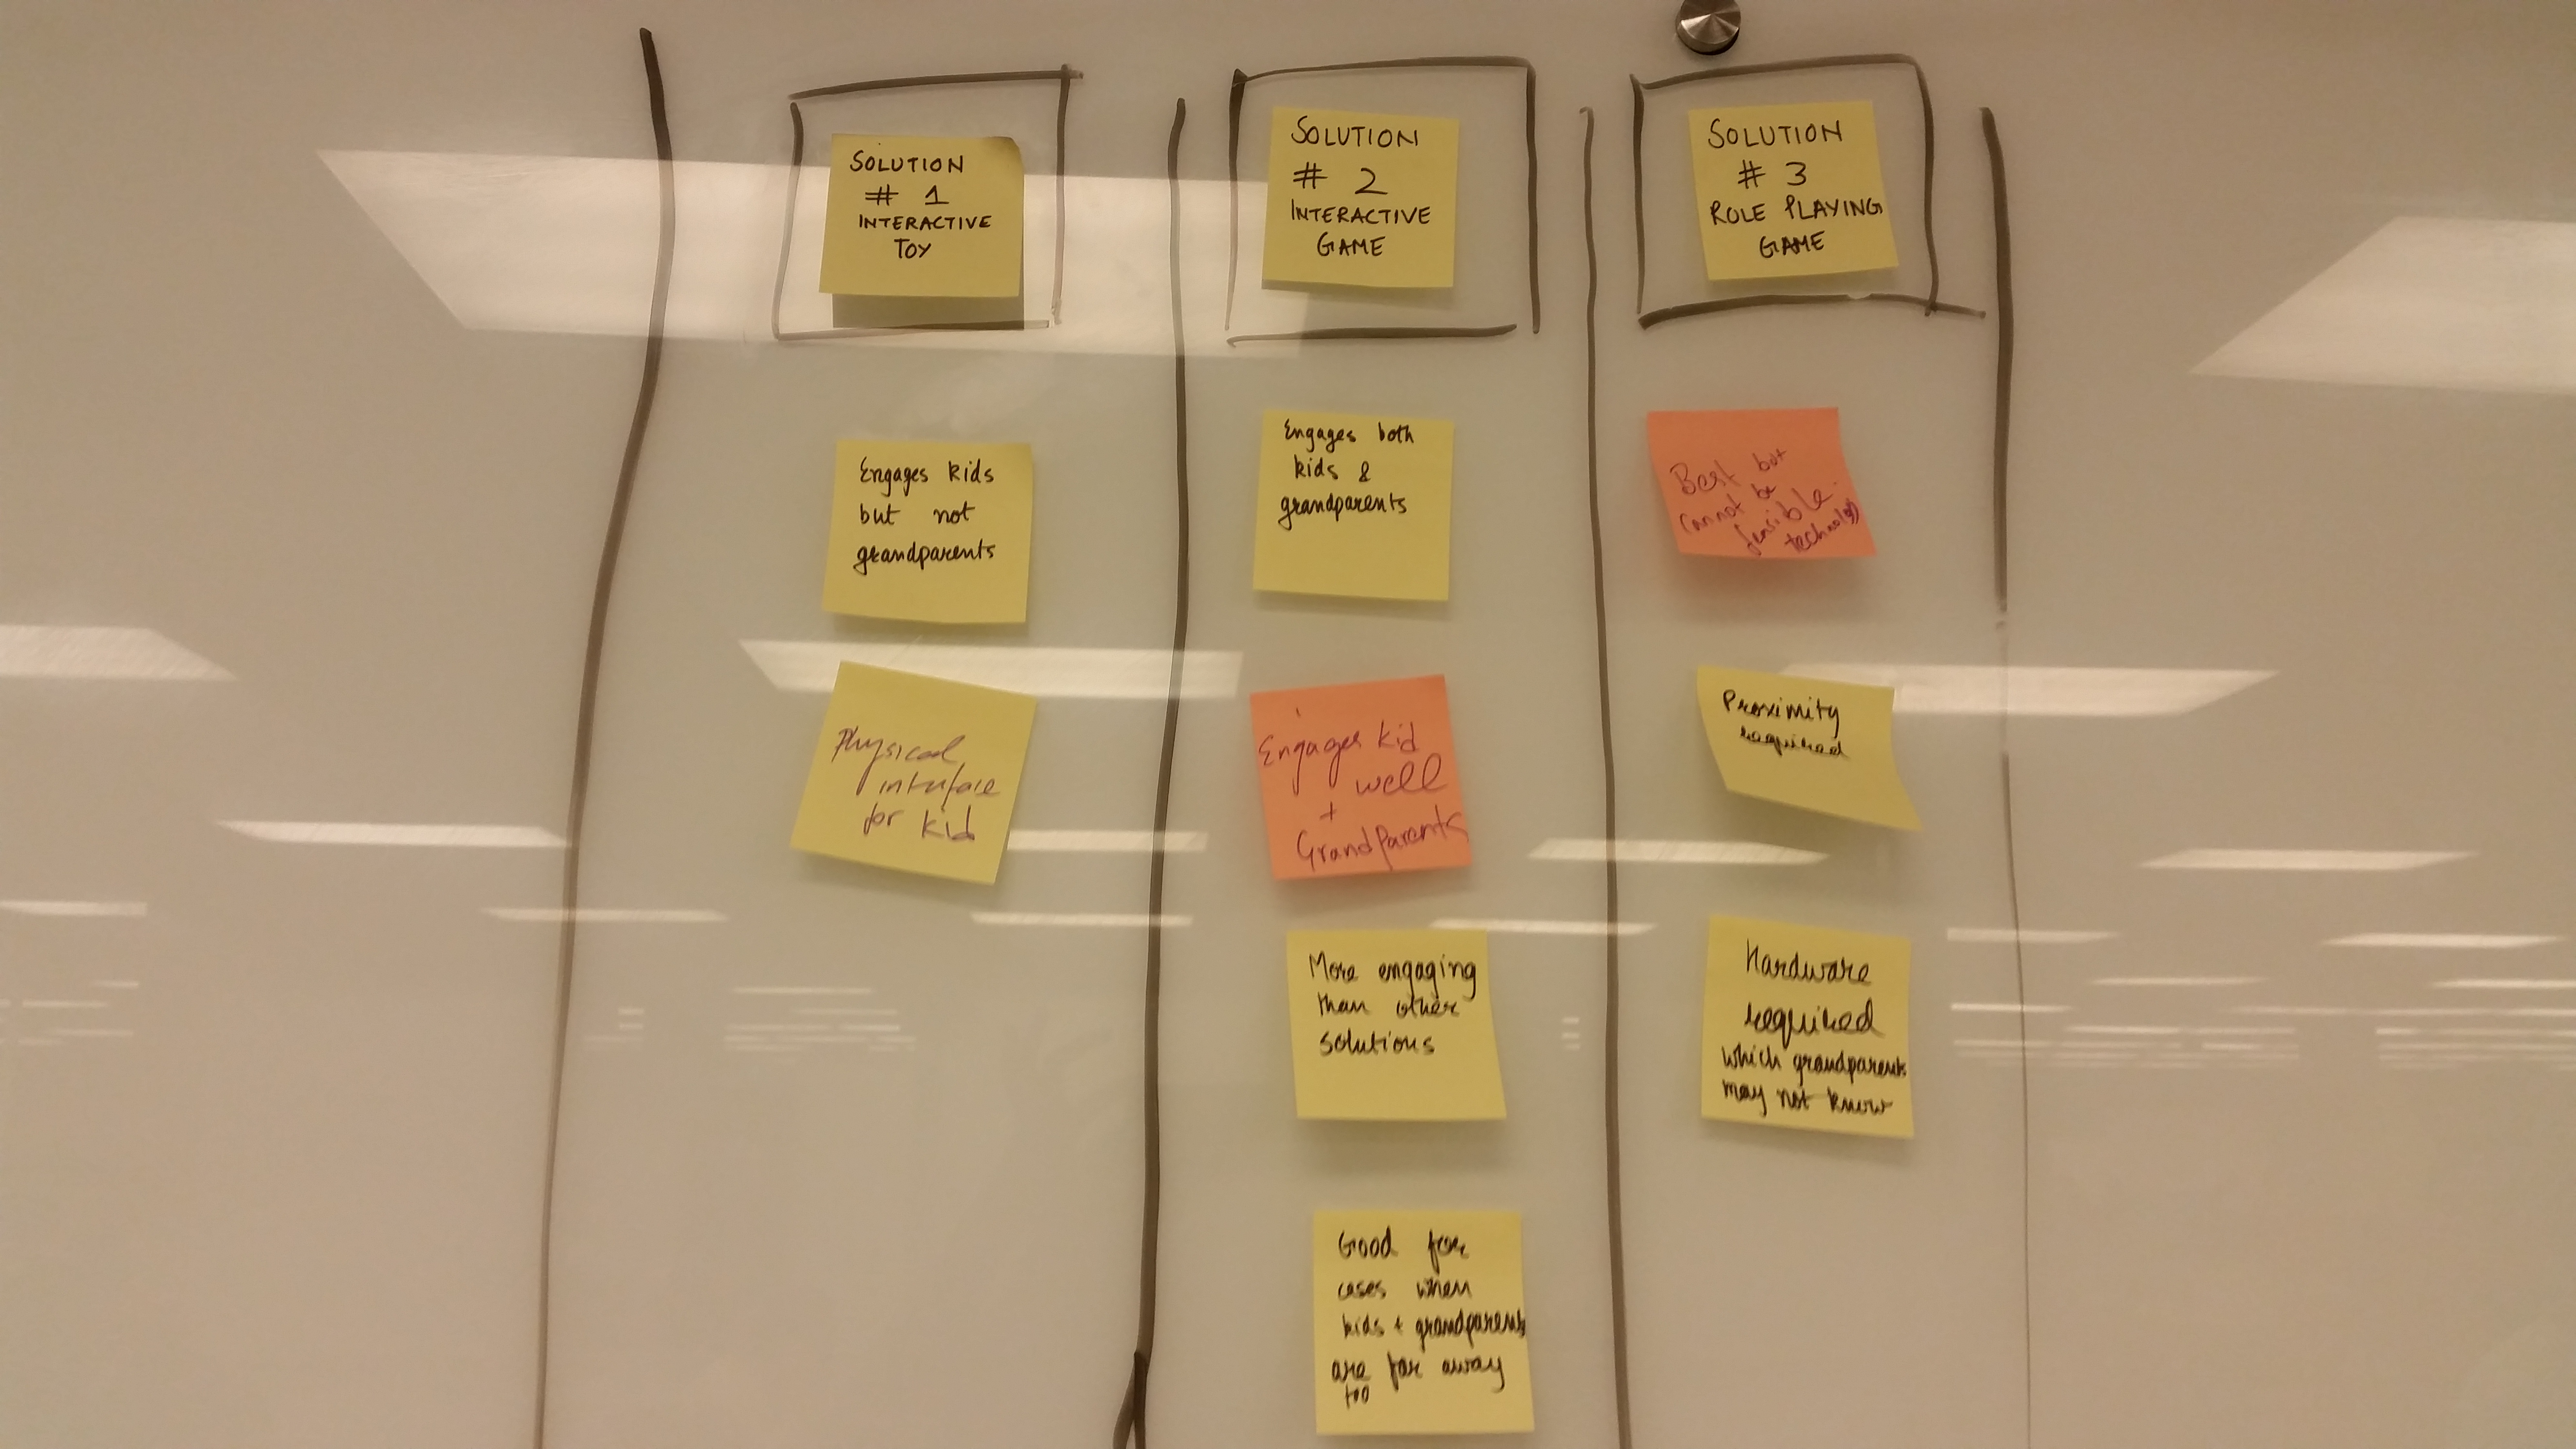 SOLUTION
# 1
INTERACTIVE
TOY
Engages kids
but not
grandparents
Physical
interface
for kid
SOLUTION
# 2
INTERACTIVE
GAME
Engages both
kids &
grandparents
Engages kid
well
+
Grandparents
More engaging
than other
solutions
Good for
cases when
kids + grandparents
are far away
too
SOLUTION
# 3
ROLE PLAYING
GAME
Best but
cannot be
feasible
technology
Proximity
required
Hardware
required
which grandparents
may not know